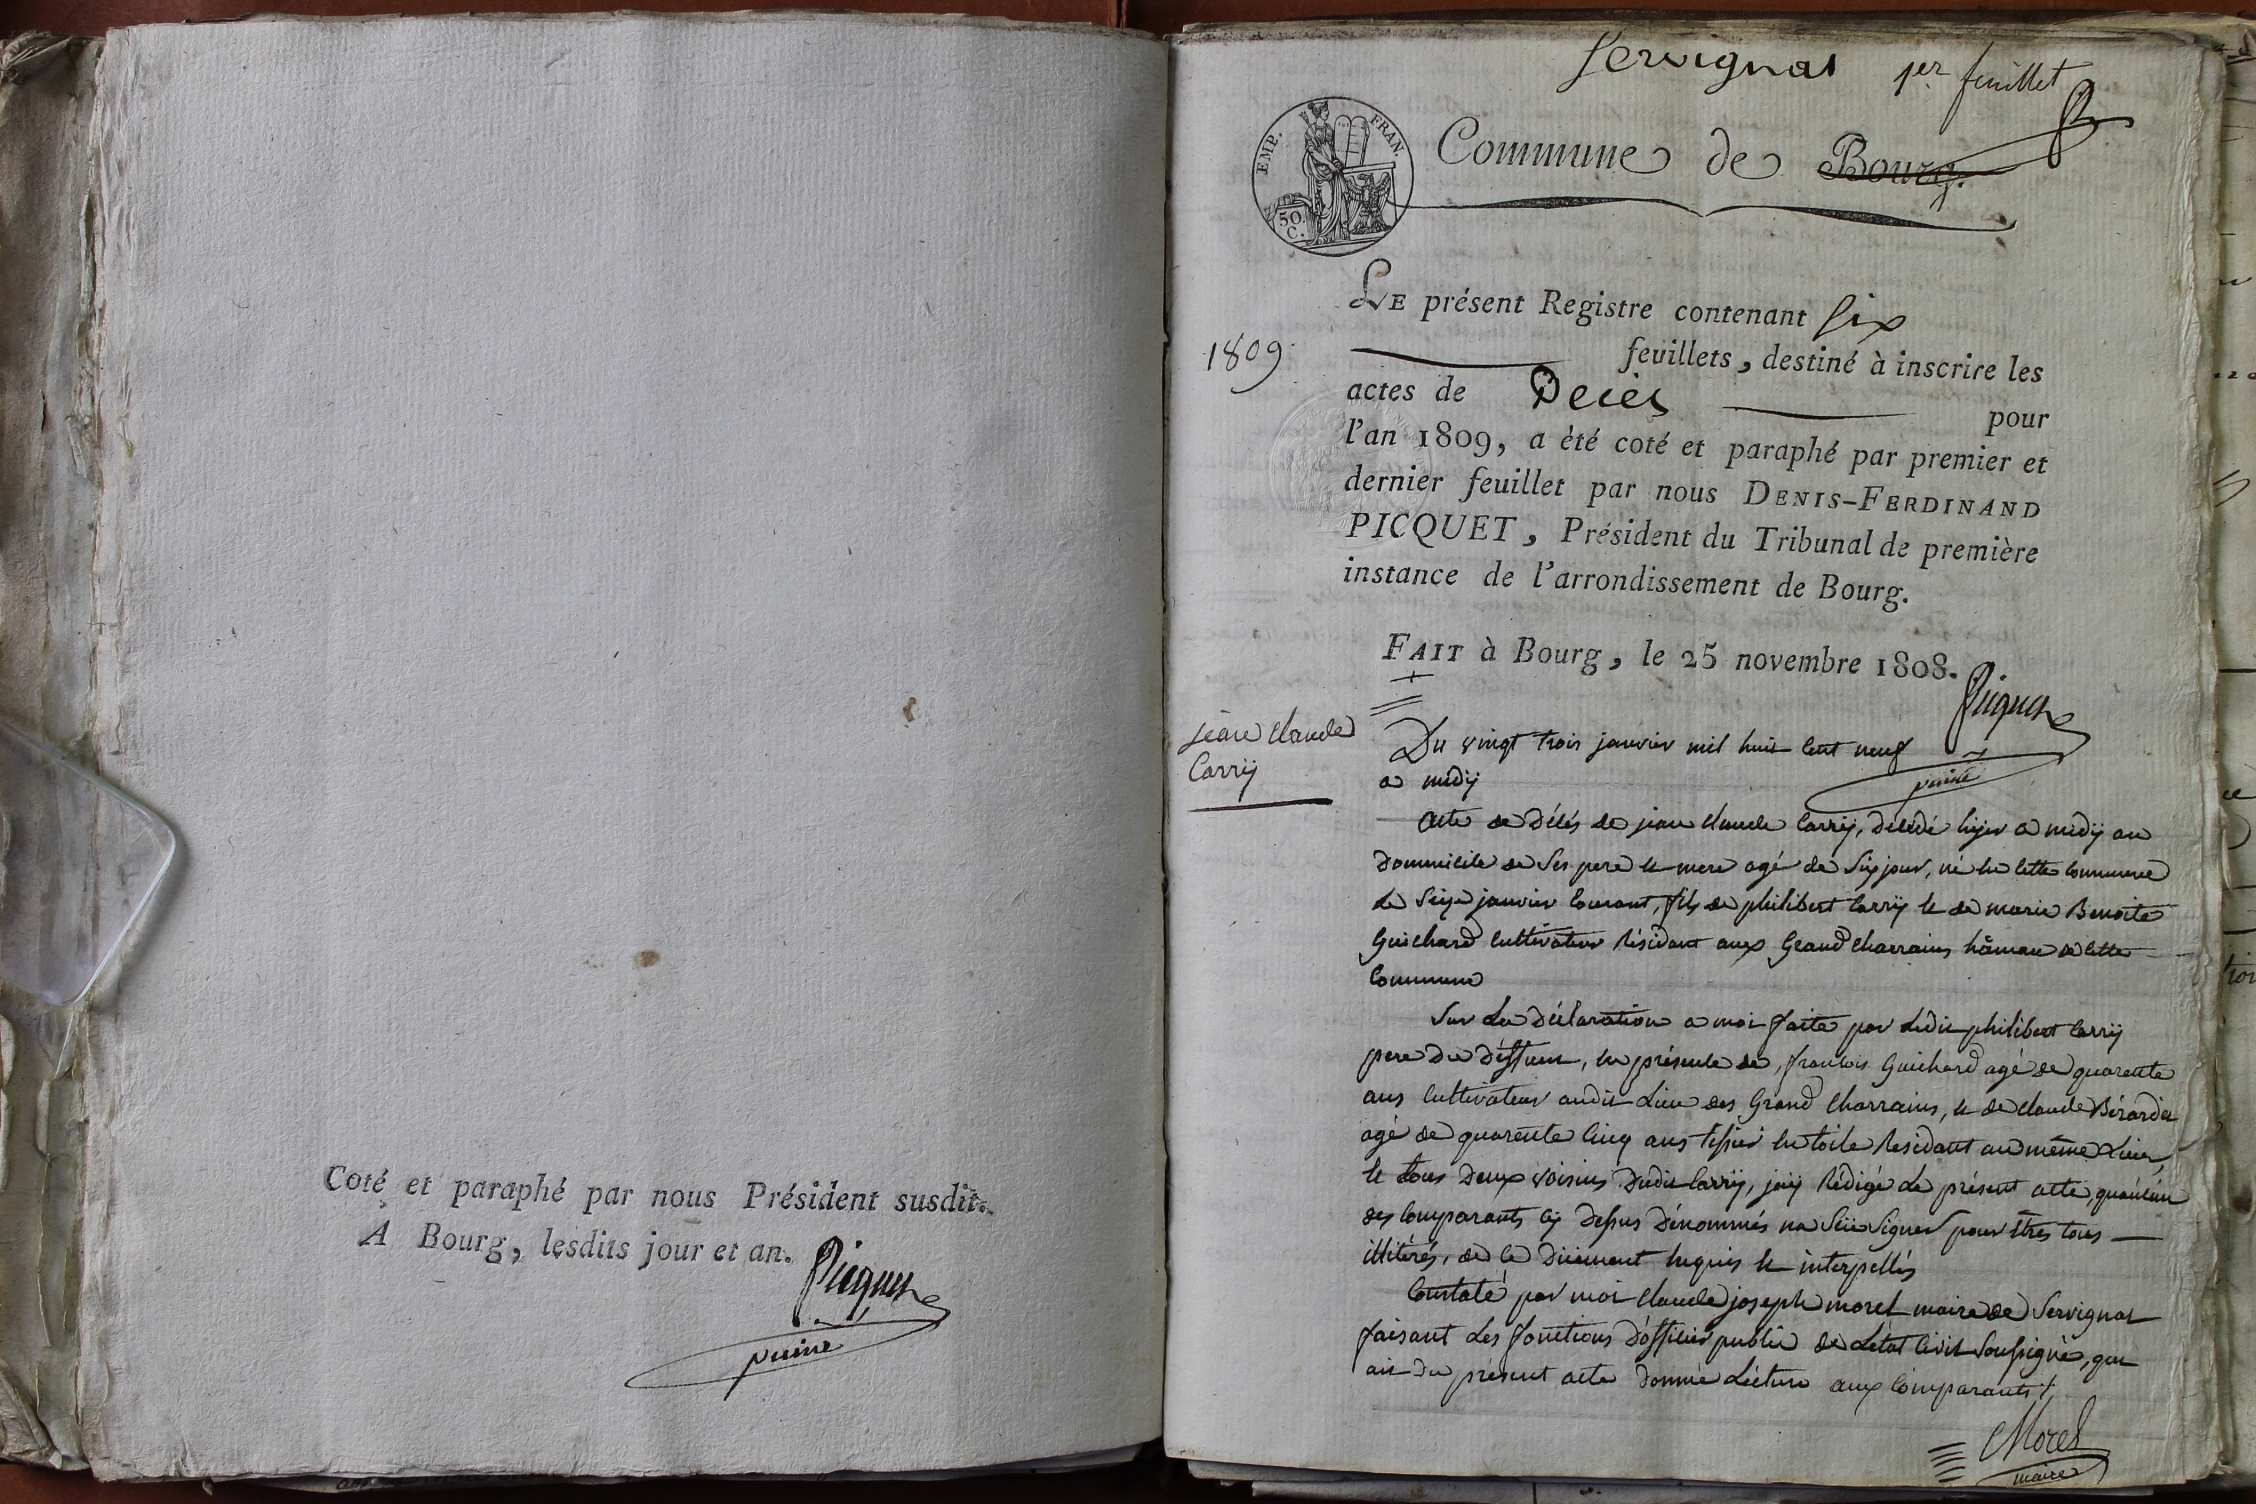 Coté et paraphé par nous Président susdit.
A Bourg, lesdits jour et an.
Picquet
puiné
Servignat 1er feuillet
EMP. FRAN.
50 C.
Commune de Bourg.
LE présent Registre contenant six
1809
feuillets, destiné à inscrire les
actes de Décès pour
l'an 1809, a été coté et paraphé par premier et
dernier feuillet par nous DENIS-FERDINAND
PICQUET, Président du Tribunal de première
instance de l'arrondissement de Bourg.
FAIT à Bourg, le 25 novembre 1808.
Picquet
puiné
jean Claude
Carrÿ
Du vingt trois janvier mil huit cent neuf
a midÿ
Acte de décés de jean Claude Carrÿ, décédé hÿer a midÿ au
dommicile de ses pere et mere agé de six jour, né en cette commune
le seize janvier courant, fils de philibert Carrÿ et de marie Benoite
Guichard cultivateur résidant aux Grand Charrains hâmau de cette
commune
Sur la déclaration a moi faite par ledit philibert Carrÿ
pere du déffunt, en présence de françois Guichard agé de quarente
ans cultivateur audit lieu des Grand Charrains, et de Claude Bérardet
agé de quarente cinq ans tissier en toile residant au même lieu,
et tous deux voisins dudit Carrÿ, j'aÿ rédigé le présent acte, qu'aucun
des comparants cÿ dessus dénommés na scu signer pour êtres tous
illitérés, de ce duement requis et interpellés
Constaté par moi Claude joseph morel maire de Servignat
faisant les fonctions d'officier public de l'état civil soussigné, qui
ait du présent acte donné lécture aux comparants
Morel
maire